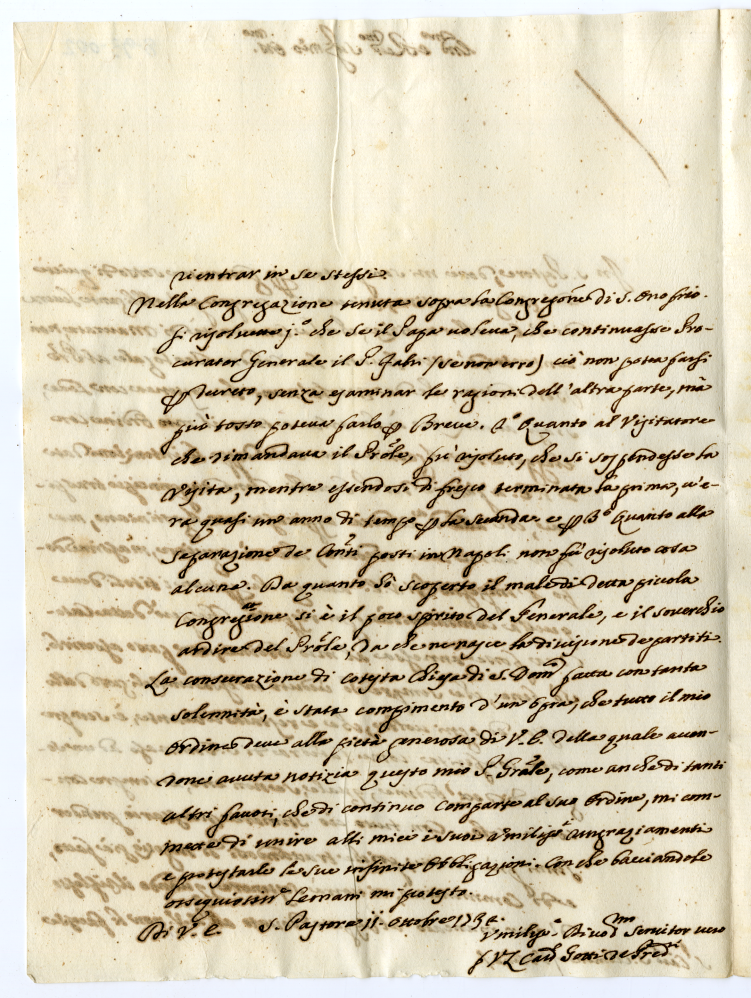 rientrar in se stessi.
Nella Congregazione tenuta sopra la Congreg.ne di S. Onofrio.
si risolvette j.° che se il Papa voleva, che continuasse Pro-
curator Generale il P. (se non erro) ciò non potea farsi
Decreto, senza esaminar le ragioni dell'altra parte, mà
più tosto poteva farlo Breve. 2° Quanto al Visitatore
che dimandava il Prõle, fù risoluto, che si sospendesse la
Visita, mentre essendosi di fresco terminata la prima, v'e-
ra quasi un'anno di tempo la seconda e 3° Quanto alla
separazione de Con.ti posti in Napoli non fù risoluto cosa
alcuna. Da quanto hò scoperto il male di detta piccola
Congregazione si è il poco spirito del Generale, e il soverchio
ardire del Prõle, da che ne nasce la divisione de partiti.
La consecrazione di cotesta Chiesa di S. Dom.co fatta con tanta
solennità, è stata compimento d'un opra, che tutto il mio
Ordine deve alla pietà generosa di V. E. della quale aven-
done avuta notizia questo mio P. Gñrale, come anche di tanti
altri favori, che di continuo comparte al suo Ordine, mi com-
mette di unire alli miei i suoi umiliss.i ringraziamenti
e protestarle le sue infinite Obbligazioni. Con che bacciandole
ossequiosam.e le mani mi protesto.
Di V. E. S. Pastore 11 Ottobre
Umiliss.o Divot.mo Servitor vero
Gotti de Pred.ri